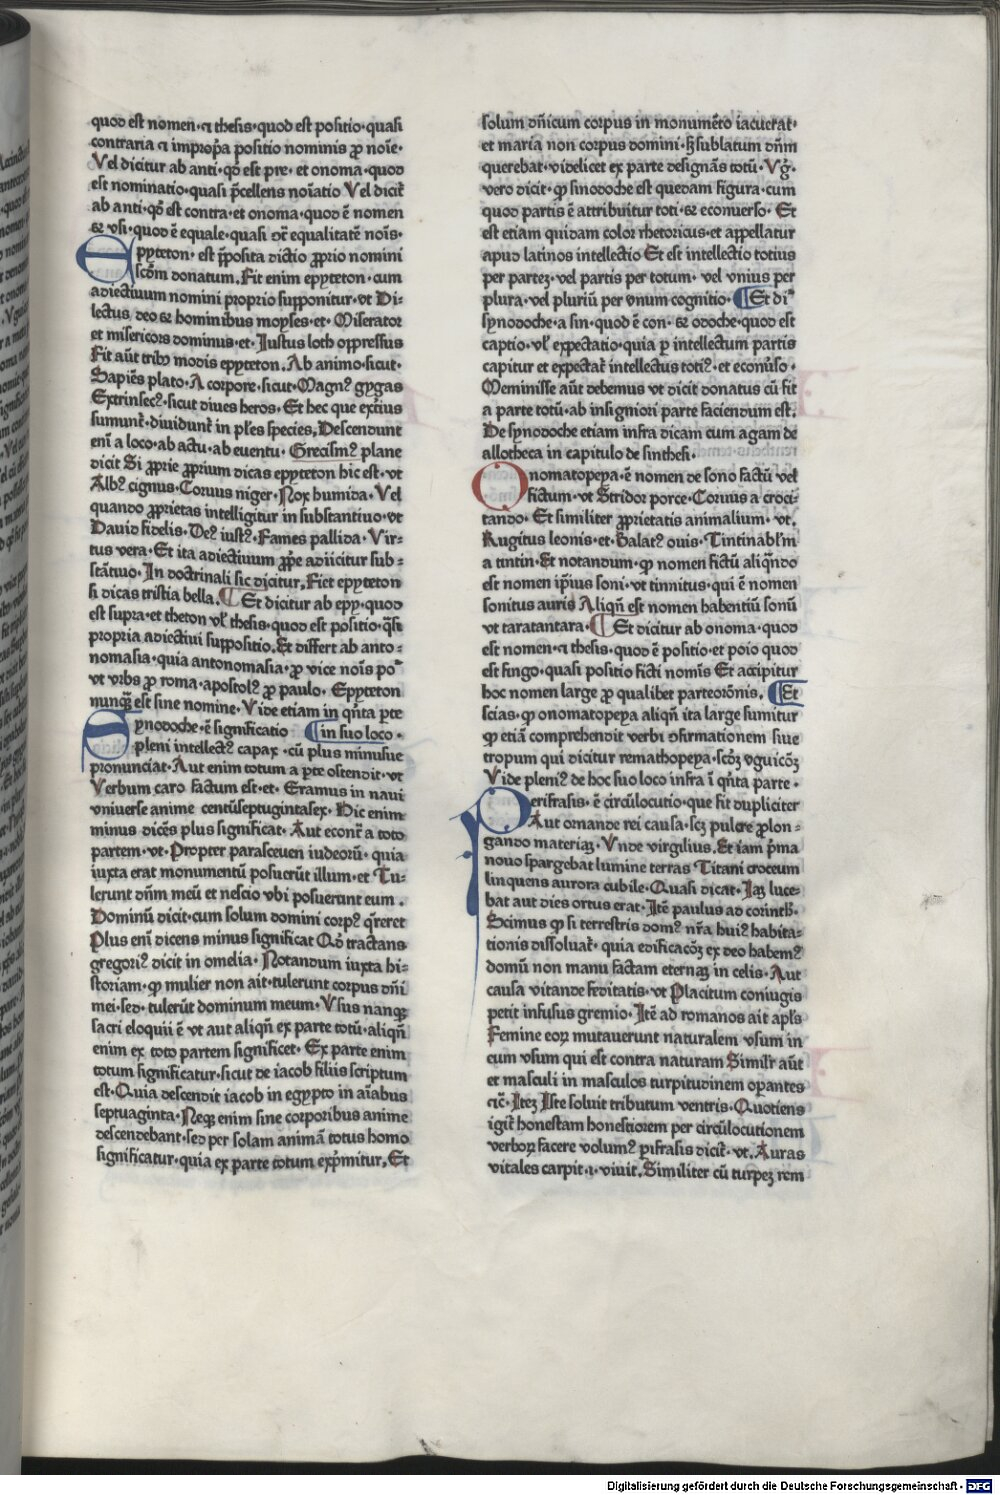 quod est nomen·⁊ thesis·quod est positio·quasi
contraria ⁊ imp̄pa positio nominis ꝓ noīe·
Vel dicitur ab anti·qd̄ est pre· et onoma·quod
est nominatio·quasi p̄cellens noīatio Vel dicit̄
ab anti·qd̄ est contra·et onoma·quod ē nomen
⁊ vsi·quod ē equale·quasi dc̄ equalitatē noīs·
Epyteton·est p̄posita dictio ꝓprio nomini
scd̄m donatum. Fit enim epyteton·cum
adiectiuum nomini proprio supponitur·vt Di⸗
lectus deo ⁊ hominibus moyses·et· Miserator
et misericors dominus·et· Iustus loth oppressus
Fit aūt tribꝰ modis epyteton. Ab animo·sicut·
Sapiēs plato· A corpore·sicut·Magnꝰ gygas
Extrinsecꝰ·sicut diues heros. Et hec que extius
sumunt̄·diuidunt̄ in pl̄es species. Descendunt
enī a loco·ab actu·ab euentu· Grecismꝰ plane
dicit Si ꝓprie ꝓprium dicas epyteton hic est·vt
Albꝰ cignus·Coruus niger·Nox humida·Vel
quando ꝓprietas intelligitur in substantiuo·vt
Dauid fidelis·Deꝰ iustꝰ·Fames pallida·Vir⸗
tus vera·Et ita adiectiuum ꝓpe adiicitur sub⸗
stātiuo·In doctrinali sic dicitur. Fiet epyteton
si dicas tristia bella. ¶ Et dicitur ab epy·quod
est supra·et theton vl̄ thesis·quod est positio·q̄si
propria adiectiui suppositio. Et differt ab anto⸗
nomasia·quia antonomasia·ꝓ vice noīs po
vt vrbs ꝓ roma·apostolꝰ ꝓ paulo· Epyteton
nunqꝫ est sine nomine·Vide etiam in qn̄ta pte
Synodoche·ē significatio ¶ in suo loco·
pleni intellectꝰ capax·cū plus minusue
pronunciat·Aut enim totum a pte ostendit·vt
Verbum caro factum est·et· Eramus in naui
vniuerse anime centūseptugintasex·Hic enim
minus dicēs plus significat·Aut econt̄ a toto
partem·vt·Propter parasceuen iudeorū·quia
iuxta erat monumentū posuerūt illum·et Tu⸗
lerunt dn̄m meū et nescio vbi posuerunt eum.
Dominū dicit·cum solum domini corpꝰ q̄reret
Plus enī dicens minus significat Qd̄ tractans
gregoriꝰ dicit in omelia·Notandum iuxta hi⸗
storiam·ꝙ mulier non ait·tulerunt corpus dn̄i
mei·sed·tulerūt dominum meum·Vsus nanqꝫ
sacri eloquii ē vt aut aliqn̄ ex parte totū·aliqn̄
enim ex toto partem significet·Ex parte enim
totum significatur·sicut de iacob filiis scriptum
est·Quia descendit iacob in egypto in aīabus
septuaginta·Neqꝫ enim sine corporibus anime
descendebant·sed per solam animā totus homo
significatur·quia ex parte totum exp̄mitur. Et
solum dn̄icum corpus in monumēto iacuerat·
et maria non corpus domini·sꝫ sublatum dn̄m
querebat·videlicet ex parte designās totū·Vg̊·
vero dicit·ꝙ sinodoche est quedam figura·cum
quod partis ē attribuitur toti·⁊ econuerso·Et
est etiam quidam color rhetoricus·et appellatur
apud latinos intellectio Et est intellectio totius
per partez·vel partis per totum·vel vnius per
plura·vel pluriū per vnum cognitio·¶ Et di
synodoche·a sin·quod ē con·⁊ odoche·quod est
captio·vl̄ expectatio·quia ꝑ intellectum partis
capitur et expectat̄ intellectus totiꝰ·et econūso·
Meminisse aūt debemus vt dicit donatus cū fit
a parte totū·ab insigniori parte faciendum est.
De synodoche etiam infra dicam cum agam de
allotheca in capitulo de sinthesi·
Onomatopeya·ē nomen de sono factū vel
fictum·vt Stridor porce·Coruus a croci⸗
tando·Et similiter ꝓprietatis animalium·vt.
Rugitus leonis·et·Balatꝰ ouis·Tintinabl̄m
a tintin·Et notandum·ꝙ nomen fictū aliqn̄do
est nomen ip̄ius soni·vt tinnitus·qui ē nomen
sonitus auris Aliqn̄ est nomen habentiū sonū
vt taratantara·¶ Et dicitur ab onoma·quod
est nomen·⁊ thesis·quod ē positio·et poio quod
est fingo·quasi positio ficti nomīs Et accipitur
hoc nomen large ꝓ qualibet parteorōnis. ¶ Et
scias·ꝙ onomatopeya aliqn̄ ita large sumitur
ꝙ etiā comprehendit verbi ꝯfirmationem siue
tropum qui dicitur remathopeya·scd̄ꝫ vguicōꝫ
Vide pleniꝰ de hoc suo loco infra ī qn̄ta parte·
Perifrasis·ē circūlocutio·que fit dupliciter
Aut ornande rei causa·scꝫ pulcre ꝓlon⸗
gando materiaꝫ·Vnde virgilius. Et iam p̄ma
nouo spargebat lumine terras Titani croceum
linquens aurora cubile·Quasi dicat·Iaꝫ luce⸗
bat aut dies ortus erat·Itē paulus ad corinth̄·
Scimus ꝙ si terrestris domꝰ nr̄a huiꝰ habita⸗
tionis dissoluat̄·quia edificacōꝫ ex deo habemꝰ
domū non manu factam eternaꝫ in celis·Aut
causa vitande feditatis·vt Placitum coniugis
petit infusus gremio·Itē ad romanos ait apl̄s
Femine eoꝝ mutauerunt naturalem vsum in
eum vsum qui est contra naturam Simil̄r aūt
et masculi in masculos turpitudinem opantes
⁊c̄·Iteꝫ Iste soluit tributum ventris·Quotiens
igit̄ honestam honestiorem per circūlocutionem
verboꝝ facere volumꝰ pifrasis dicit̄·vt. Auras
vitales carpit·i·viuit. Similiter cū turpeꝫ rem
Digitalisierung gefördert durch die Deutsche Forschungsgemeinschaft - DFG